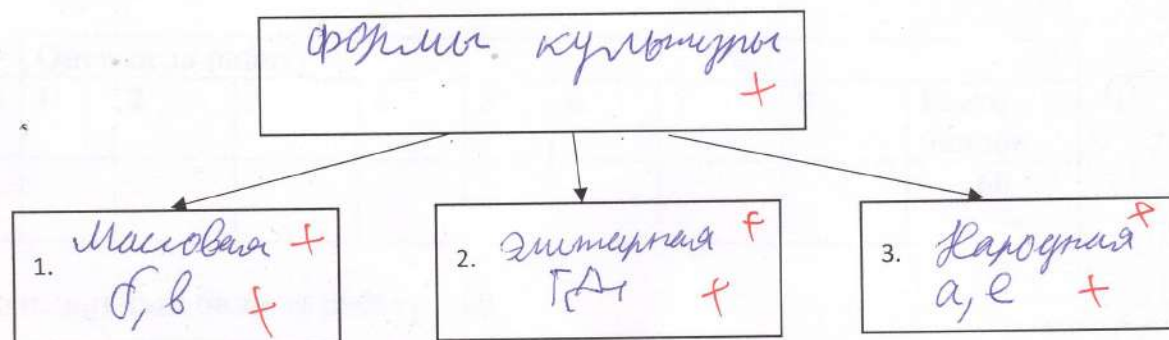 формы культуры
+
1. Массовая +
б, в +
2. элитарная +
Г, Д, +
3. Народная +
а, е +